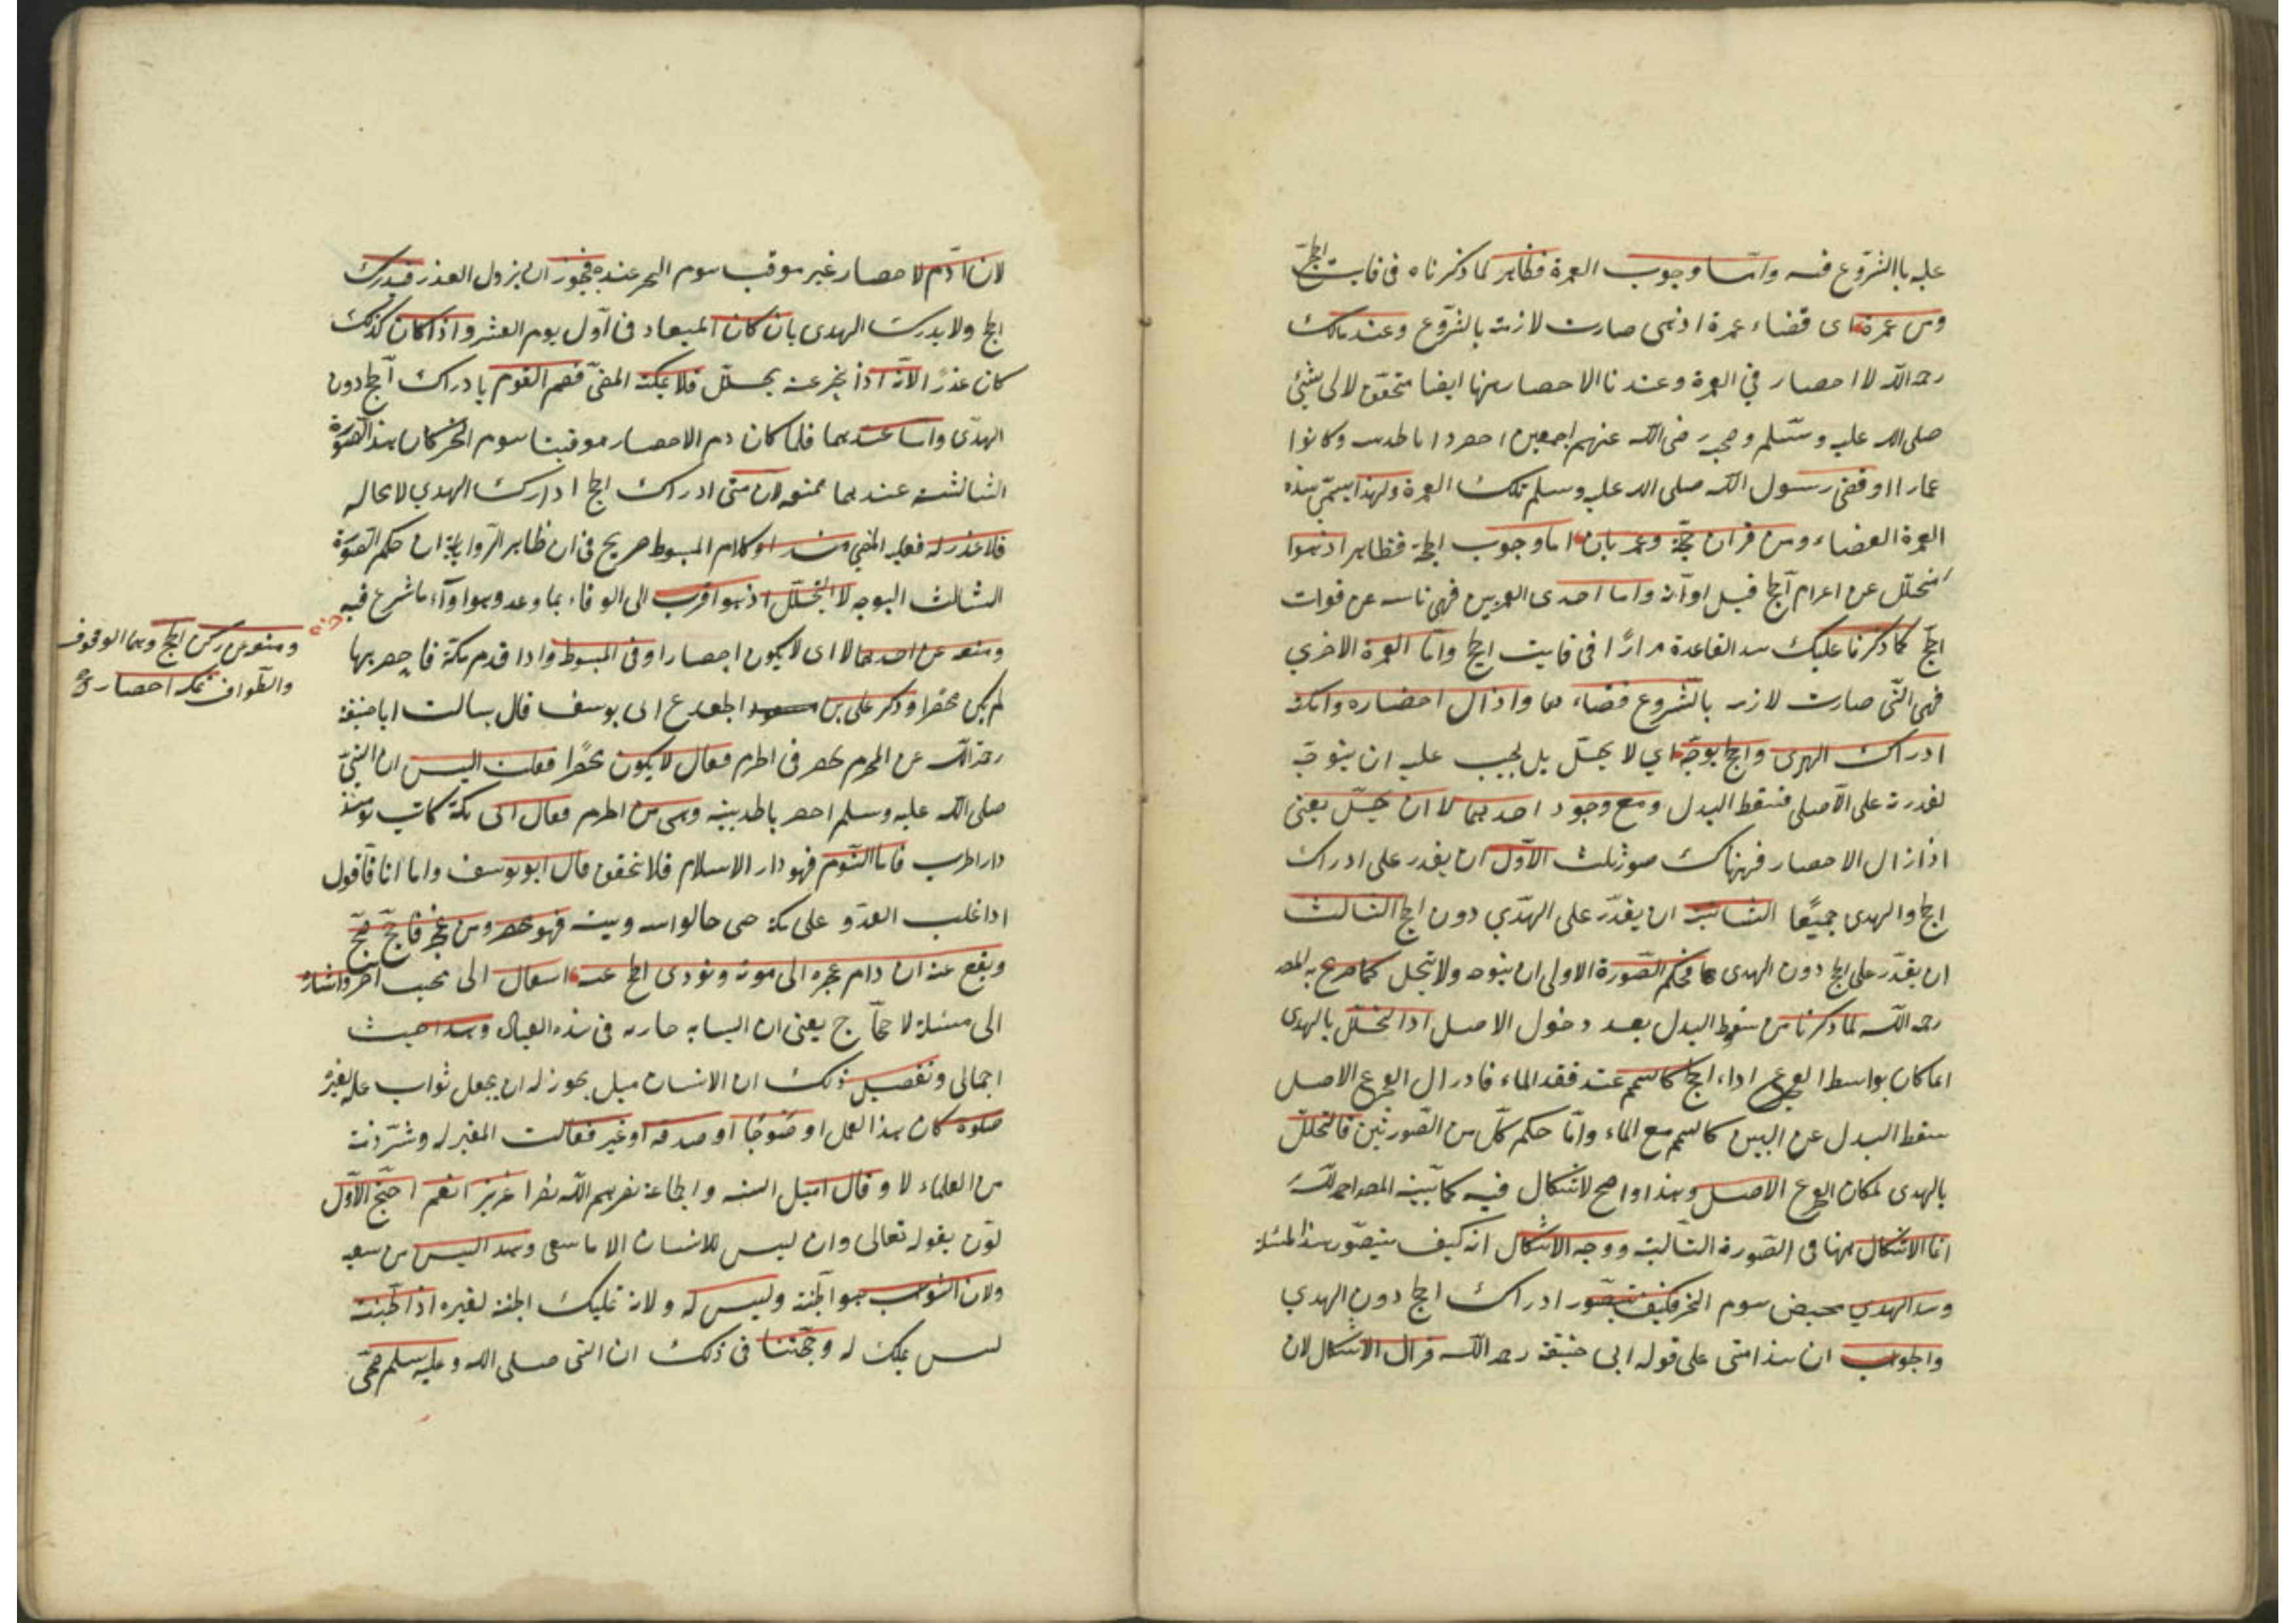 عليه باالشروع فيه واما وجوب العمرة فظاهر لما ذكرناه فى فايت الحج
ومن عمرة اى قضاء عمرة اذ هى صارت لازمة بالشروع وعند مالك
رحمه الله لا احصار في العمرة وعندنا الاحصار منها ايضا متحقق لان النبي
صلى الله عليه وسلم وصحبه رضى الله عنهم اجمعين احصروا بالحديبية وكانوا
عمارا وقضى رسول الله صلى الله عليه وسلم تلك العمرة ولهذا يسمى هذه
العمرة القضاء ومن قران حجة وعمرتان اما وجوب الحجة فظاهر اذ هوا
متحلل عن احرام الحج قبل اوانه واما احدى العمرتين فهى ناسه عن فوات
الحج كما ذكرنا عليك هذه القاعدة مرارًا فى فايت الحج واما العمرة الاخري
فهى التى صارت لازمة بالشروع قضاء لها واذ زال احصاره وامكنه
ادراك الهدى والحج يوجه اي لا يحل بل يجب عليه ان يتوجه
لقدرته على الاصلى فسقط البدل ومع وجود احدهما لا ان يحل يعنى
اذا زال الاحصار فهناك صور ثلث الاول ان يقدر على ادراك
الحج والهدى جميعًا الثانية ان يقدر على الهدي دون الحج الثالث
ان يقدر على الحج دون الهدى فحكم الصورة الاولى ان يتوجه ولا يتحلل كما صرح به المص
رحمه الله لما ذكرنا من سقوط البدل بعد دخول الاصل اذ التحلل بالهدى
انما كان بواسطة العجز عن اداء الحج كالتيمم عند فقد الماء فاذا زال العجز عن الاصل
سقط البدل عن البين كالتيمم مع الماء واما حكم كل من الصورتين فالتحلل
بالهدى لمكان العجز عن الاصل وهذا واضح لا اشكال فيه كما بينه المص رحمه الله
انما الاشكال ههنا فى الصورة الثالثة ووجه الاشكال انه كيف يتصور هذا المسئلة
وهذا الهدي مختص بيوم النحر فكيف يتصور ادراك الحج دون الهدي
والجواب ان هذا متى على قوله ابى حنيفة رحمه الله فزال الاشكال لان
لان دم الاحصار غير موقت بيوم النحر عنده فيجوز ان يزول العذر فيدرك
الحج ولا يدرك الهدى بان كان الميعاد فى اول يوم العشر واذا كان كذلك
كان عذرًا لانه اذا نحر عنه يحلل فلا يمكنه المضى فصم القوم بادراك الحج دون
الهدى واما عندهما فلما كان دم الاحصار موقتا بيوم النحر كان هذه الصورة
الثالثة عندهما ممتنعه لان متى ادراك الحج ادارك الهدي لا محاله
فلا عذر له فعليه المضي وهذا وكلام المبسوط صريح فى ان ظاهر الرواية ان حكم الصورة
الثالث التوجه لا التحلل اذ هوا اقرب الى الوفاء بما وعد وهوا اداء ما شرع فيه
ومنعه عن احدهما لا اى لا يكون احصارا وفى المبسوط واذا قدم مكة فاحصر بها
لم يكن محصرا وذكر على بن الجعد عن ابى يوسف قال سالت ابا حنيفة
رحمه الله عن المحرم يحصر فى الحرم فقال لا يكون محصرًا فقلت اليس ان النبي
صلى الله عليه وسلم احصر بالحديبية وهى من الحرم فقال ان مكة كانت يومئذ
دار الحرب فاما اليوم فهو دار الاسلام فلا تحقق قال ابو يوسف واما انا فاقول
اذا غلب العدو على مكة حتى حالوا بينه وبين البيت فهو محصر ومن عجز فاحج صح
ويقع عنه ان دام عجزه الى موته ونودى الحج عنه
الى مسئلة الحاج يعنى ان النيابه جاريه فى هذه العبادة وهذا بحث
اجمالى وتفصيل ذلك ان الانسان هل يجوز له ان يجعل ثواب عمله لغيره
صلوة كان هذا العمل او صوما او صدقه او غير فقالت المعتزله وشرذمة
من العلماء لا وقال اهل السنة والجماعة نصرهم الله نصرا عزيزا نعم احتج الاول
لون بقوله تعالى وان ليس للانسان الا ما سعى وهذا ليس من سعيه
ولان الثواب هو الجنة وليس له ولاية تمليك الجنة لغيره اذ الجنة
ليس بملك له وحجتنا فى ذلك ان النبى صلى الله وعليه سلم ضحى
ومنع من ركن الحج وهما الوقوف
والطواف بمكه احصار